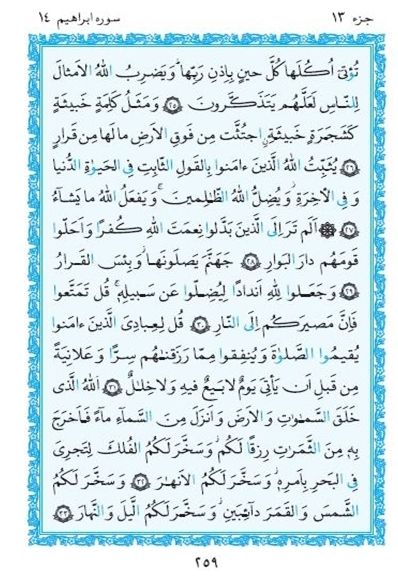 جزء ١٣
سوره ابراهيم ١٤
تُؤتى اُكُلَها كُلَّ حينٍ بِاِذنِ رَبِّها وَيَضرِبُ اللهُ الاَمثالَ
لِلنّاسِ لَعَلَّهُم يَتَذَكَّرونَ ٢٥ وَمَثَلُ كَلِمَةٍ خَبيثَةٍ
كَشَجَرَةٍ خَبيثَةٍ اجتُثَّت مِن فَوقِ الاَرضِ ما لَها مِن قَرارٍ
٢٦ يُثَبِّتُ اللهُ الَّذينَ ءامَنوا بِالقَولِ الثّابِتِ فِى الحَيوٰةِ الدُّنيا
وَ فِى الاٰخِرَةِ وَ يُضِلُّ اللهُ الظّٰلِمينَ وَ يَفعَلُ اللهُ ما يَشاءُ
٢٧ اَلَم تَرَ اِلَى الَّذينَ بَدَّلوا نِعمَتَ اللهِ كُفرًا وَ اَحَلّوا
قَومَهُم دارَ البَوارِ ٢٨ جَهَنَّمَ يَصلَونَها وَ بِئسَ القَرارُ
٢٩ وَ جَعَلوا لِلّٰهِ اَندادًا لِيُضِلّوا عَن سَبيلِهِ قُل تَمَتَّعوا
فَاِنَّ مَصيرَكُم اِلَى النّارِ ٣٠ قُل لِعِبادِىَ الَّذينَ ءامَنوا
يُقيمُوا الصَّلوٰةَ وَ يُنفِقوا مِمّا رَزَقنٰهُم سِرًّا وَ عَلانِيَةً
مِن قَبلِ اَن يَأتِىَ يَومٌ لا بَيعٌ فيهِ وَ لا خِلٰلٌ ٣١ اَللهُ الَّذى
خَلَقَ السَّمٰوٰتِ وَ الاَرضَ وَ اَنزَلَ مِنَ السَّماءِ ماءً فَاَخرَجَ
بِهِ مِنَ الثَّمَرٰتِ رِزقًا لَكُم وَ سَخَّرَ لَكُمُ الفُلكَ لِتَجرِىَ
فِى البَحرِ بِاَمرِهِ وَ سَخَّرَ لَكُمُ الاَنهٰرَ ٣٢ وَ سَخَّرَ لَكُمُ
الشَّمسَ وَ القَمَرَ دائِبَينِ وَ سَخَّرَ لَكُمُ الَّيلَ وَ النَّهارَ ٣٣
٢٥٩